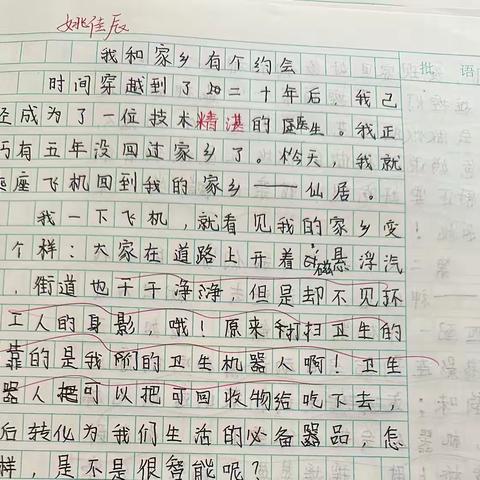 姚佳辰
我和家乡有个约会
批 语
时间穿越到了二十年后,我已
经成为了一位技术精湛的医生。我正
巧有五年没回过家乡了。今天,我就
乘座飞机回到我的家乡——仙居。
我一下飞机,就看见我的家乡变
个样:大家在道路上开着磁悬浮汽
,街道也干干净净,但是却不见环
工人的身影,哦!原来打扫卫生的
靠的是我们的卫生机器人啊!卫生
器人可以把可回收物给吃下去,
后转化为我们生活的必备器品,怎
样,是不是很智能呢?